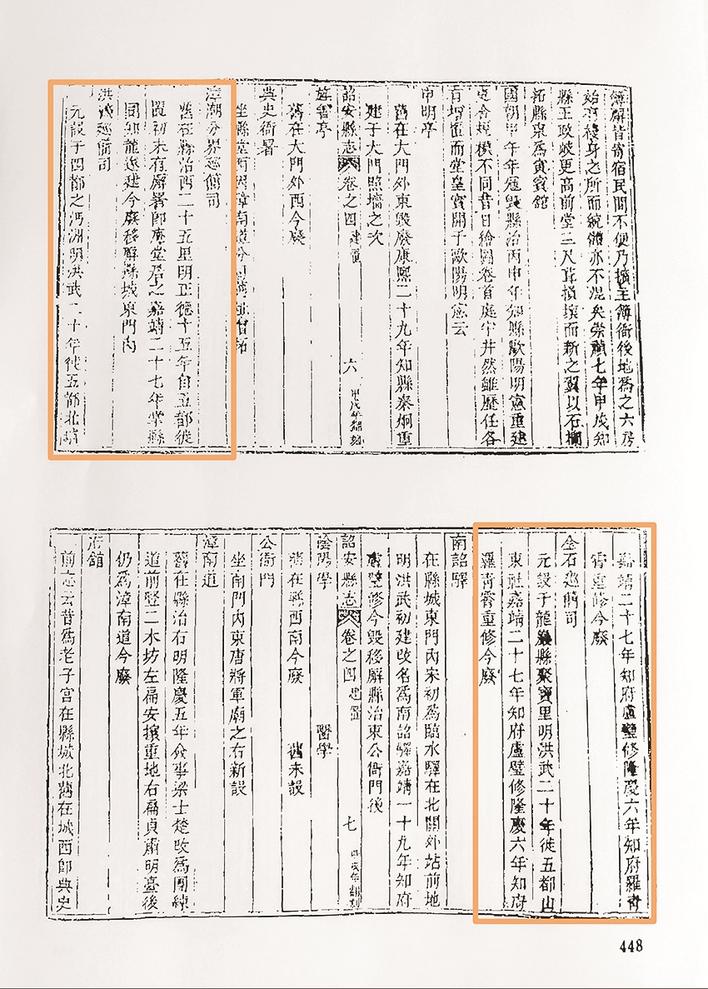 簿廨昔寄宿民間不便乃擴主簿衙後地爲之六房
始有棲身之所而統領亦不混矣崇禎七年甲戌知
縣王政岐更高前堂三尺葺損壞而新之翼以石欄
拓縣東爲寅賓館
國朝甲午年寇毀縣治丙申年知縣歐陽明憲重建
更舍規模不同昔日繪圖卷首庭宇井然雖歷任各
有增置而堂皇實開于歐陽明憲云
申明亭
舊在大門外東毀廢康熙二十九年知縣秦炯重
建于大門照墻之次
詔安縣志 卷之四 建置 六
旌善亭
舊在大門外西今廢
典史衙署
漳潮分界巡簡司
舊在縣治西二十五里明正德十五年自五都徙
置初未有廨署即庵堂居之嘉靖二十七年掌縣
同知龍遂建今廢移縣城東門內
洪淡巡簡司
元設于四都之沔洲明洪武二十年徙五都北埔
嘉靖二十七年知府盧璧修隆慶六年知府羅青
霄重修今廢
金石巡簡司
元設于龍巖縣聚寶里明洪武二十年徙五都山
東嘉靖二十七年知府盧璧修隆慶六年知府
羅青霄重修今廢
南詔驛
在縣城東門內宋初爲臨水驛在北關外站前地
明洪武初建改名爲南詔驛嘉靖一十九年知府
盧璧修今毀移縣治東公衙門後
詔安縣志 卷之四 建置 七
陰陽學 醫學
舊在縣西南今廢 舊未設
公衙門
坐南門內東唐將軍廟之右新設
漳南道
舊在縣治右明隆慶五年僉事梁士楚改爲團練
道前豎二木坊左扁安攘重地右扁貞肅明臺後
仍爲漳南道今廢
府舘
前志云昔爲老子宮在縣城北舊在城西即典史
448